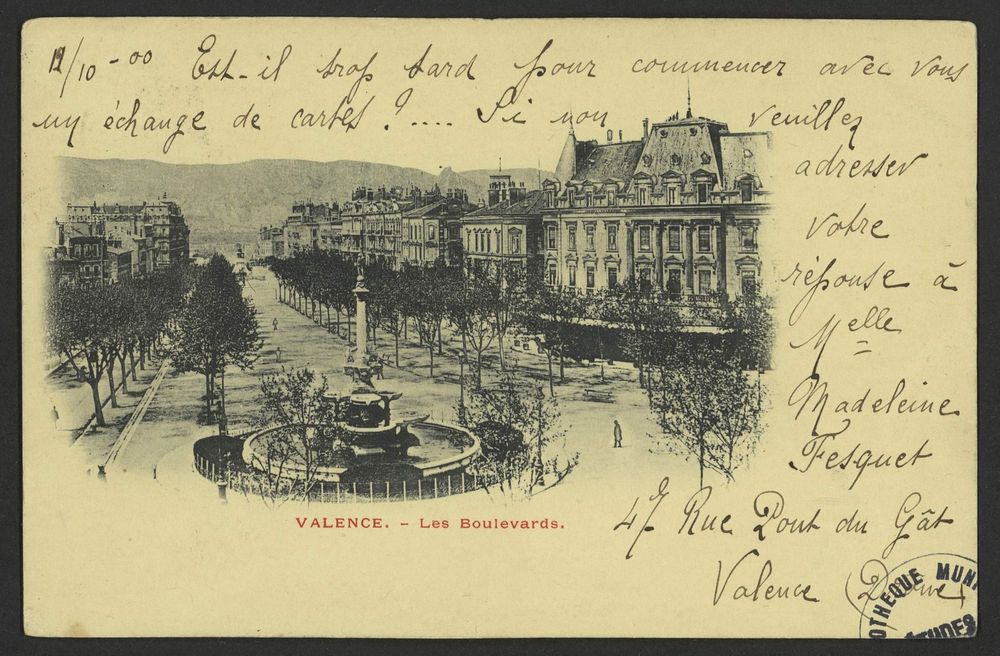 12/10-00 Est-il trop tard pour commencer avec vous
un échange de cartes ?.... Si non veuillez
adresser
votre
réponse à
Melle
Madeleine
Fesquet
47 Rue Pont du Gât
Valence (Drôme)
VALENCE. - Les Boulevards.
OTHÈQUE MUNI
ÉTUDES